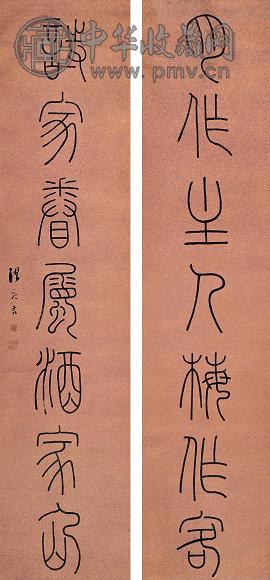 中华收藏网
www.pmv.cn
月作主人梅作客
詩家眷屬酒家仚